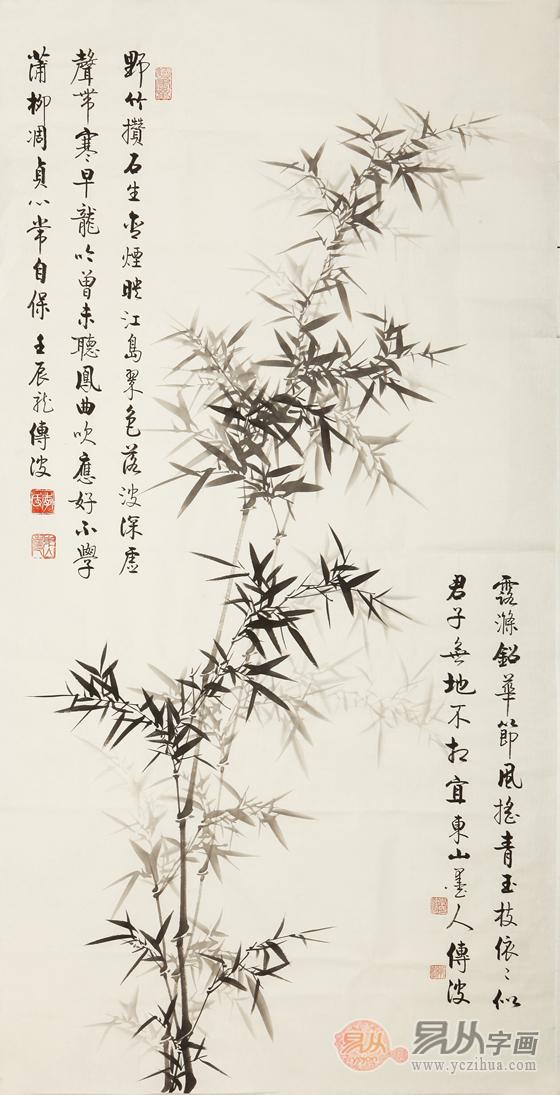 野竹攢石生含煙映江島翠色落波深虛
聲帶寒早龍吟曾未聽鳳曲吹應好不學
蒲柳凋貞心常自保壬辰龍傳波
露滌鉛華節風搖青玉枝依々似
君子無地不相宜東山墨人傳波
易从字画
www.yczihua.com